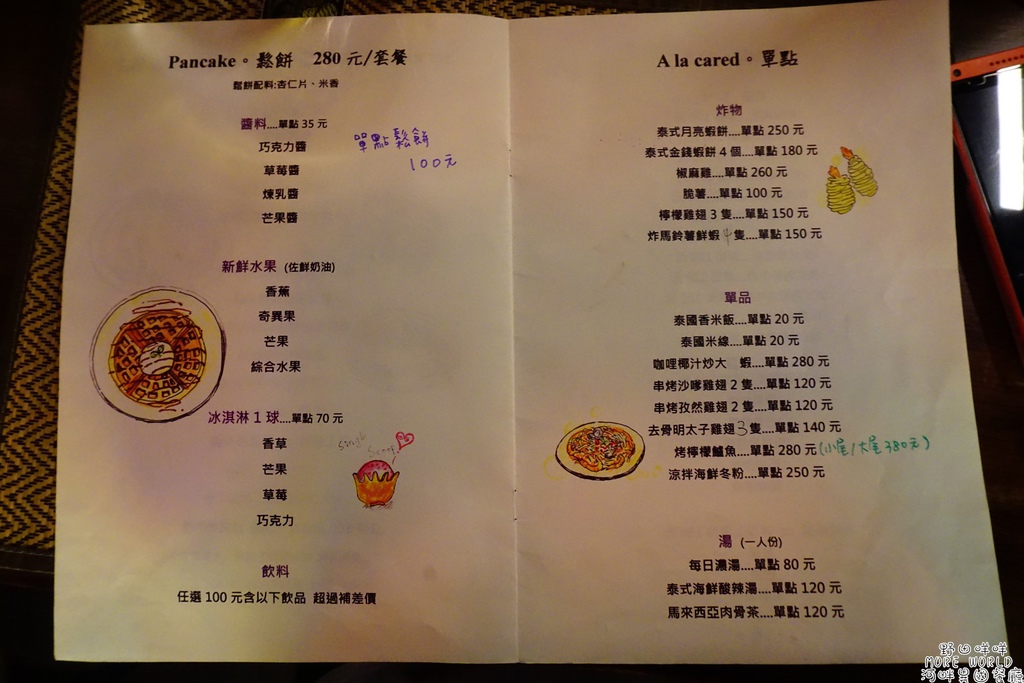 Pancake。鬆餅 280 元/套餐
鬆餅配料:杏仁片、米香
醬料....單點 35 元
巧克力醬
草莓醬
煉乳醬
芒果醬
單點鬆餅
100元
新鮮水果 (佐鮮奶油)
香蕉
奇異果
芒果
綜合水果
冰淇淋 1 球....單點 70 元
香草
芒果
草莓
巧克力
Single
Scoop
飲料
任選 100 元含以下飲品 超過補差價
A la cared。單點
炸物
泰式月亮蝦餅....單點 250 元
泰式金錢蝦餅 4 個....單點 180 元
椒麻雞....單點 260 元
脆薯....單點 100 元
檸檬雞翅 3 隻....單點 150 元
炸馬鈴薯鮮蝦 4 隻....單點 150 元
單品
泰國香米飯....單點 20 元
泰國米線....單點 20 元
咖哩椰汁炒大 蝦....單點 280 元
串烤沙嗲雞翅 2 隻....單點 120 元
串烤孜然雞翅 2 隻....單點 120 元
去骨明太子雞翅 3 隻....單點 140 元
烤檸檬鱸魚....單點 280 元(小尾/大尾380元)
涼拌海鮮冬粉....單點 250 元
湯 (一人份)
每日濃湯....單點 80 元
泰式海鮮酸辣湯....單點 120 元
馬來西亞肉骨茶....單點 120 元
野山咩咩
MORE WORLD
河畔異國餐廳